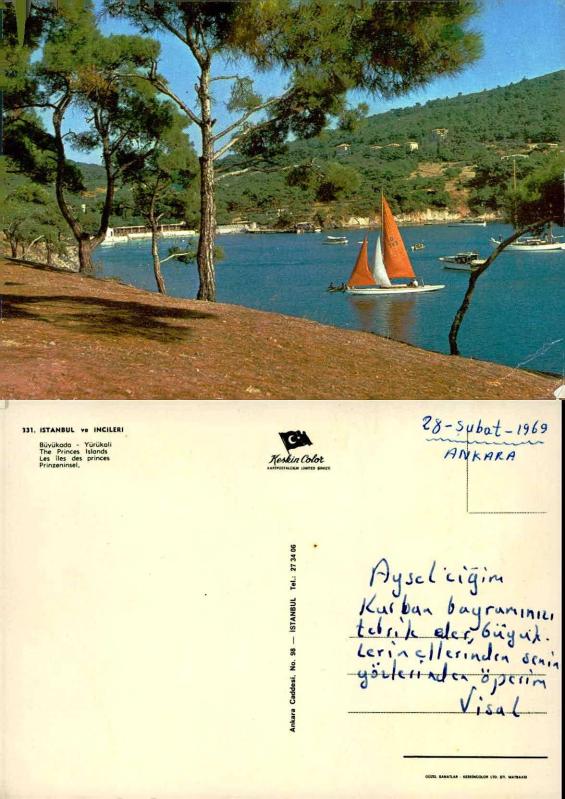 331. ISTANBUL ve INCILERI
Büyükada - Yürükali
The Princes Islands
Les îles des princes
Prinzeninsel,
Keskin Color
KARTPOSTALCILIK LIMITED ŞİRKETİ
28-Şubat-1969
ANKARA
Ankara Caddesi, No. 98 — ISTANBUL Tel.: 27 34 06
Aysel'ciğim
Kurban bayramınızı
tebrik eder, büyük-
lerin ellerinden senin
gözlerinden öperim
Visal
GÜZEL SANATLAR - KESKİNCOLOR LTD. ŞTİ. MATBAASI